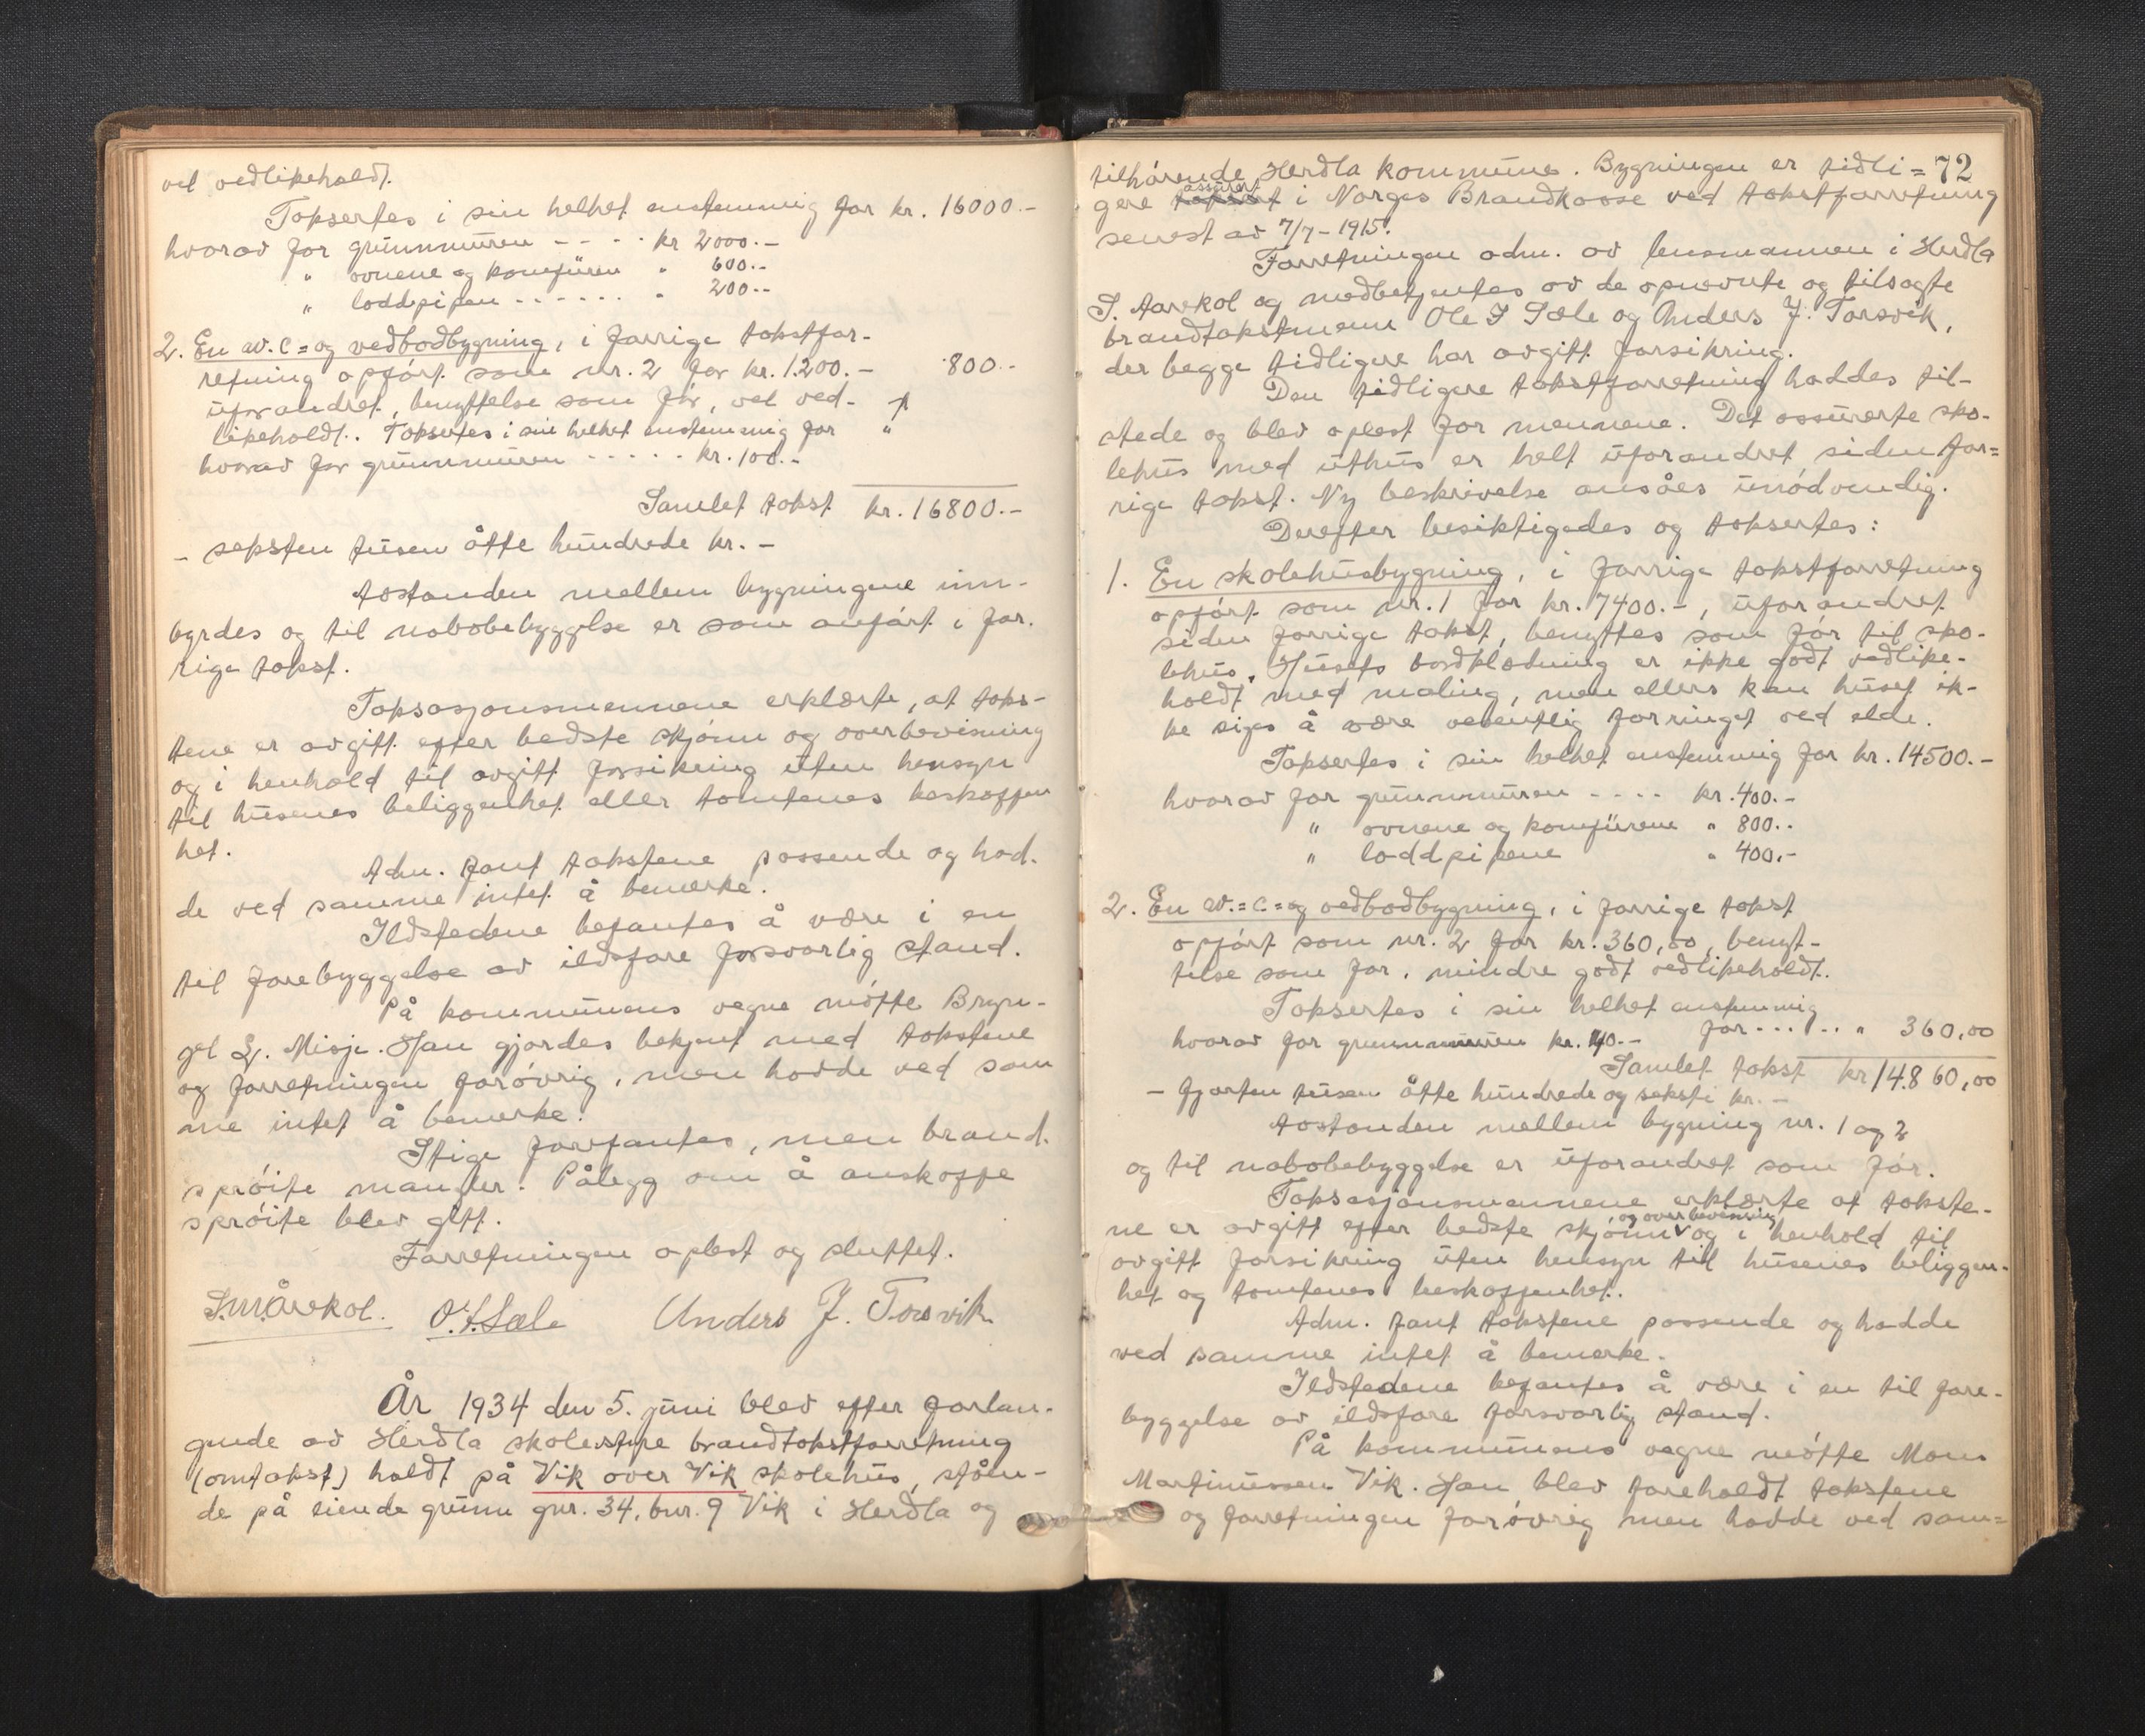 vel vedlikeholdt.
Taksertes i sin helhet enstemmig for kr. 16000.-
hvorav for grunnmuren - - - - kr 2000.-
" ovnene og komfüren " 600.-
" loddpipen - - - - - - " 200.-
2. En w.c= og vedbodbygning, i forrige takstfor-
retning opført som nr. 2 for kr. 1200.- 800.-
uforandret, benyttelse som før, vel ved-
likeholdt. Taksertes i sin helhet enstemmig for "
hvorav for grunnmuren - - - - - kr. 100.-
Samlet takst kr. 16800.-
- seksten tusen åtte hundrede kr. -
Avstanden mellem bygningene inn-
byrdes og til nabobebyggelse er som anført i for-
rige takst.
Taksasjonsmennene erklærte, at taks-
tene er avgitt efter bedste skjønn og overbevisning
og i henhold til avgitt forsikring uten hensyn
til husenes beliggenhet eller tomtenes beskaffen
het.
Adm. fant takstene passende og had-
de ved samme intet å bemerke.
Ildstedene befantes å være i en
til forebyggelse av ildsfare forsvarlig stand.
På kommunens vegne møtte Bryn-
gel L. Misje. Han gjordes bekjent med takstene
og forretningen forøvrig, men hadde ved sam
me intet å bemerke.
Stige forefantes, men brand-
sprøite mangler. Pålegg om å anskaffe
sprøite blev gitt.
Forretningen oplest og sluttet.
S.M.Årekol. O.J.Sæle Anders J. Torsvik
År 1934 den 5. juni blev efter forlan-
gende av Herdla skolestyre brandtakstforretning
(omtakst) holdt på Vik over Vik skolehus, ståen-
de på eiende grunn gnr. 34, bnr. 9 Vik i Herdla og
72
tilhørende Herdla kommune. Bygningen er tidli=
assurert
gere taksert i Norges Brandkasse ved takstforretning
senest av 7/7-1915.
Forretningen adm. av lensmannen i Herdla
S. Aarekol og medbetjentes av de opnevnte og tilsagte
brandtakstmenn Ole J Sæle og Anders J. Torsvik,
der begge tidligere har avgitt forsikring.
Den tidligere takstforretning haddes til-
stede og blev oplest for mennene. Det assurerte sko-
lehus med uthus er helt uforandret siden for=
rige takst. Ny beskrivelse ansåes unødvendig.
Derefter besiktigedes og taksertes:
1. En skolehusbygning, i forrige takstforretning
opført som nr. 1 for kr. 7400.-, uforandret
siden forrige takst, benyttes som før til sko-
lehus. Husets bordklædning er ikke godt vedlike-
holdt med maling, men ellers kan huset ik-
ke siges å være vesentlig forringet ved elde.
Taksertes i sin helhet enstemmig for kr. 14500.-
hvorav for grunnmuren - - - - kr. 400.-
" ovnene og komfürene " 800.-
" loddpipene " 400.-
2. En w.=c.=og vedbodbygning, i forrige takst
opført som nr. 2 for kr. 360,00, benyt-
telse som før, mindre godt vedlikeholdt.
Taksertes i sin helhet enstemmig
for - - - - - " 360,00
hvorav for grunnmuren kr. 40.-
Samlet takst kr 14.860,00
- fjorten tusen åtte hundrede og seksti kr. -
Avstanden mellem bygning nr. 1 og 2
og til nabobebyggelse er uforandret som før.
Taksasjonsmennene erklærte at takste-
og overbevisning
ne er avgitt efter bedste skjønn og i henhold til
avgitt forsikring uten hensyn til husenes beliggen-
het og tomtenes beskaffenhet.
Adm. fant takstene passende og hadde
ved samme intet å bemerke.
Ildstedene befantes å være i en til fore-
byggelse av ildsfare forsvarlig stand.
På kommunens vegne møtte Mons
Martinussen Vik. Han blev foreholdt takstene
og forretningen forøvrig men hadde ved sam=